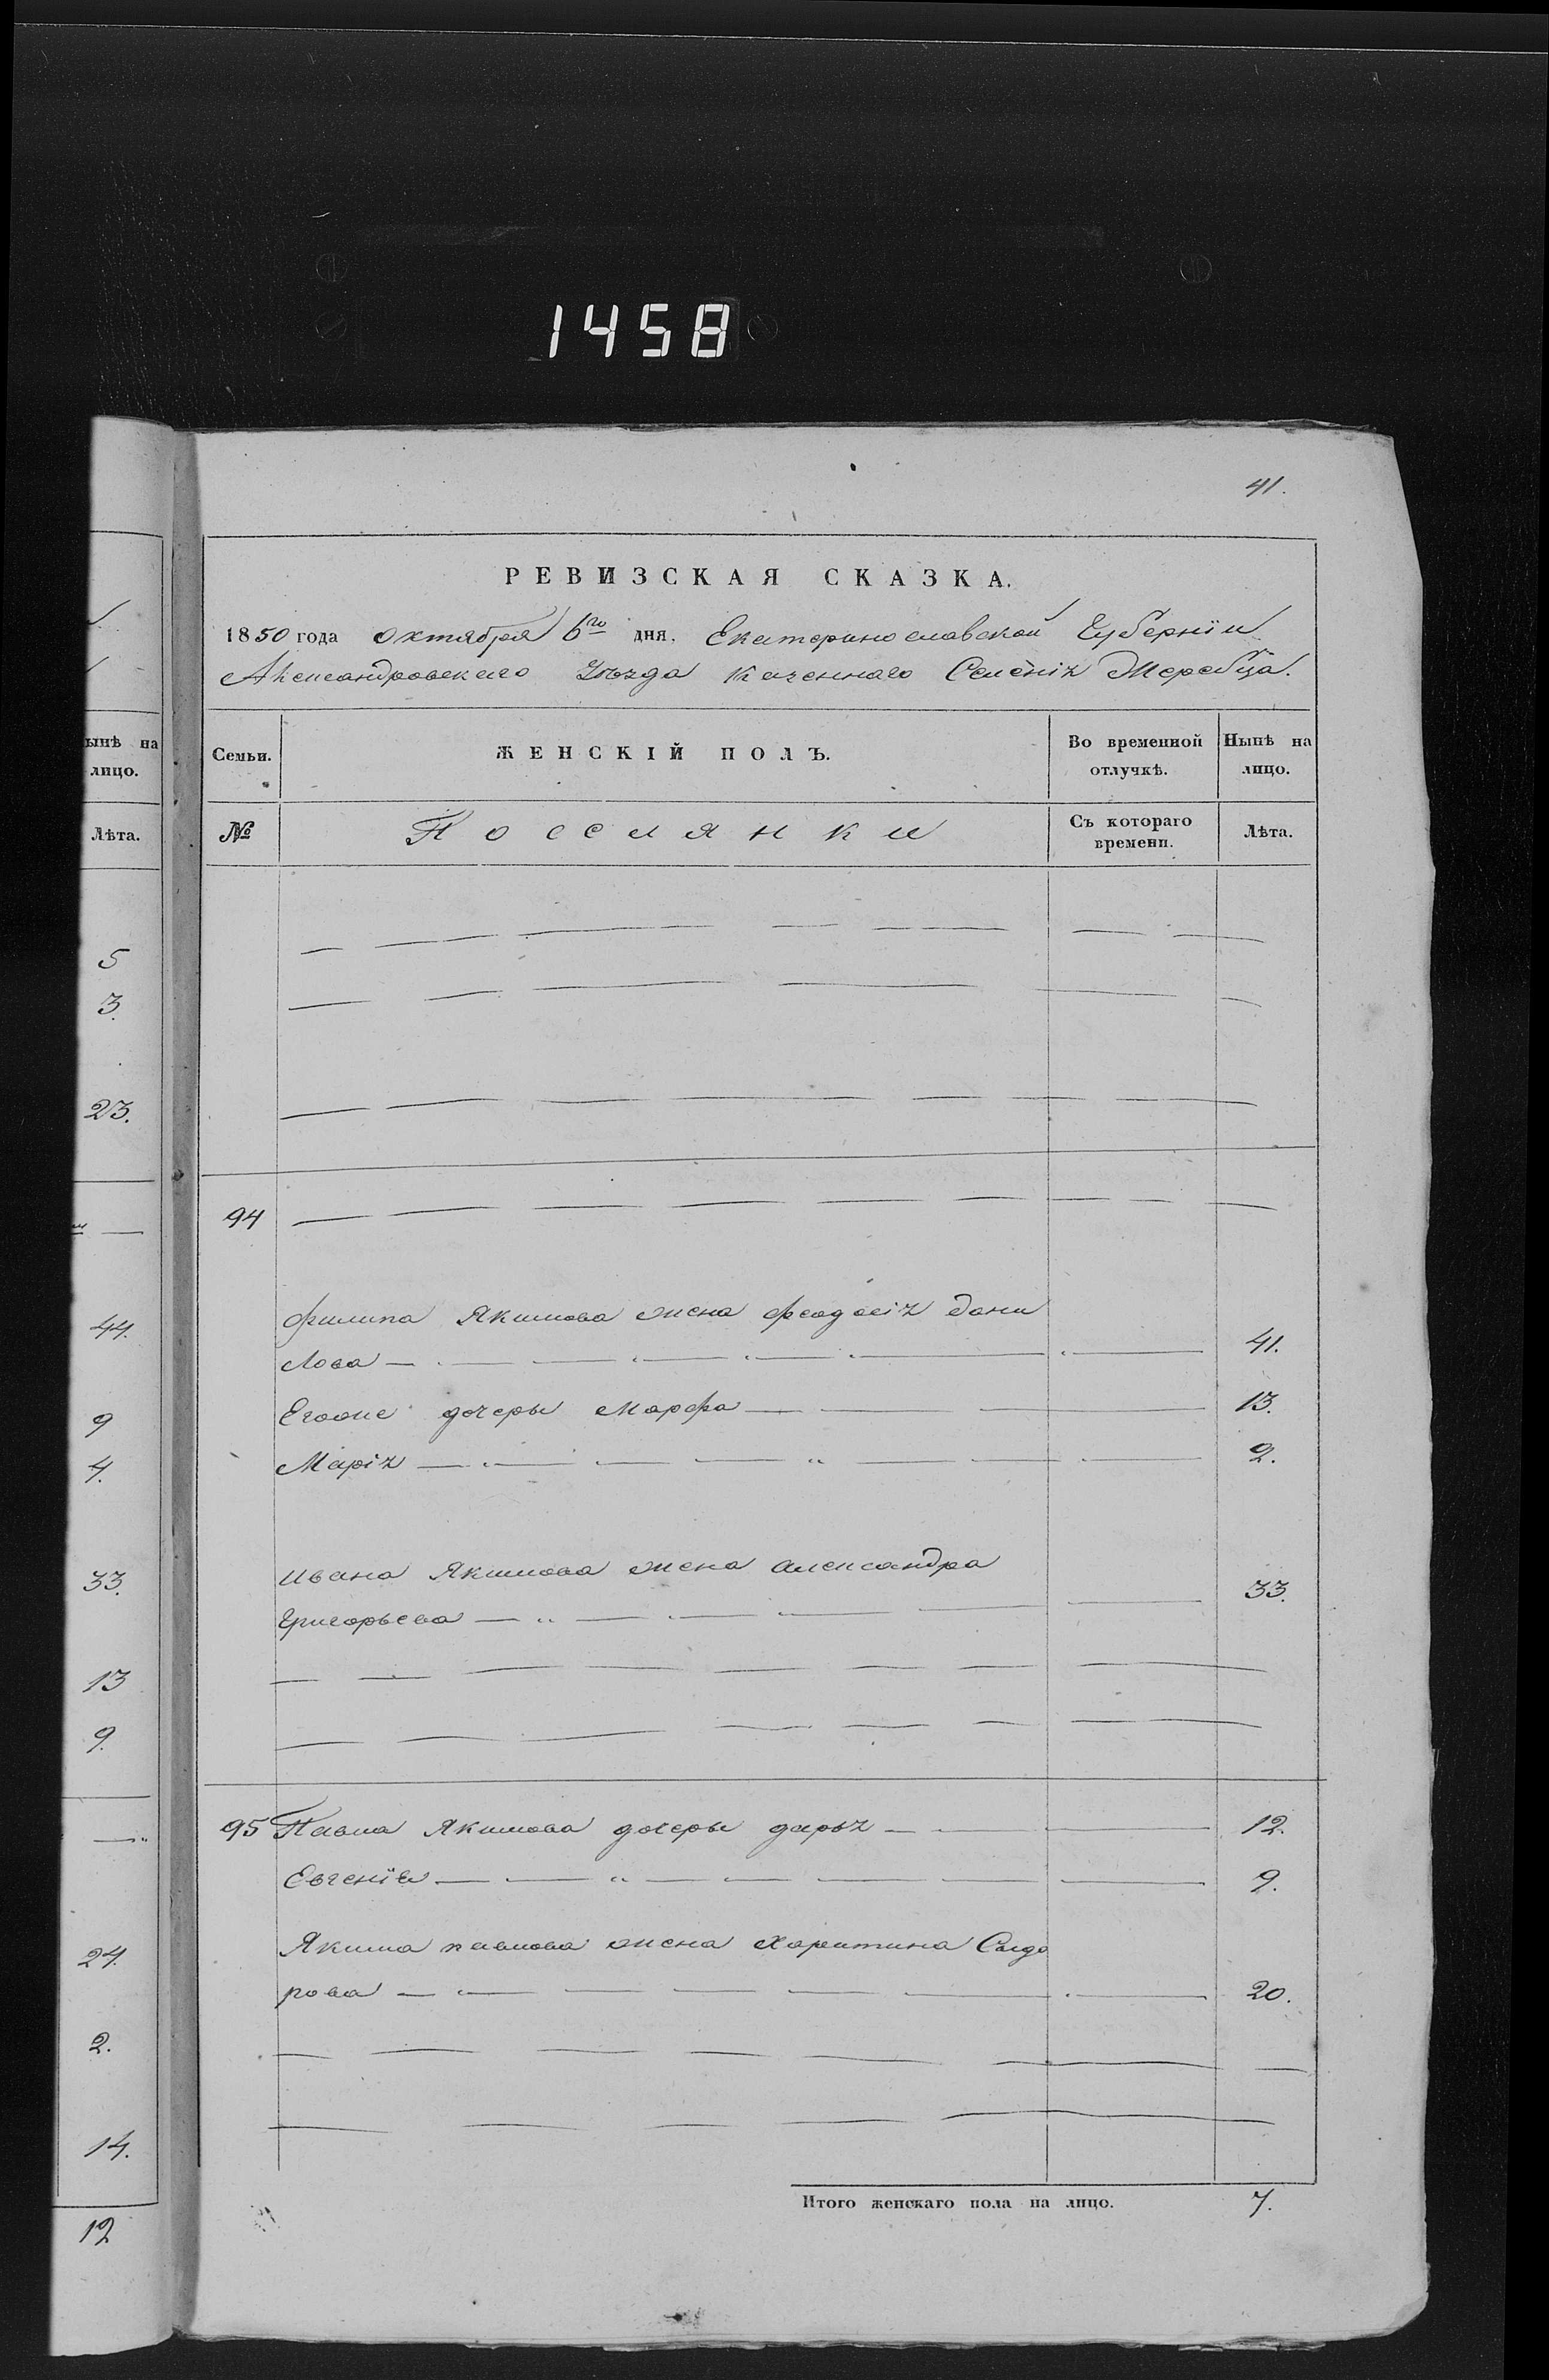 1458
41.
РЕВИЗСКАЯ СКАЗКА.
1850 года Октября 6го дня. Екатеринославской Губерніи
Александровскаго Уѣзда Казеннаго Селенія Жеребца.
Семьи.
ЖЕНСКІЙ ПОЛЪ.
Во временной отлучкѣ.
Нынѣ на лицо.
№
Поселянки
Съ котораго времени.
Лѣта.
94
Филипа Якимова жена Феодосія Дани
лова 41.
Егоже дочеры Марфа 13.
Марія 2.
Ивана Якимова жена Александра
Григорьева 33.
95 Павла Якимова дочеры Дарья 12.
Евгенія 9.
Якима Павлова жена Харитина Сидо
рова 20.
Итого женскаго пола на лицо. 7.
ынѣ на
лицо.
Лѣта.
5
3.
23.
44.
9
4.
33.
13
9.
24.
2.
14.
12